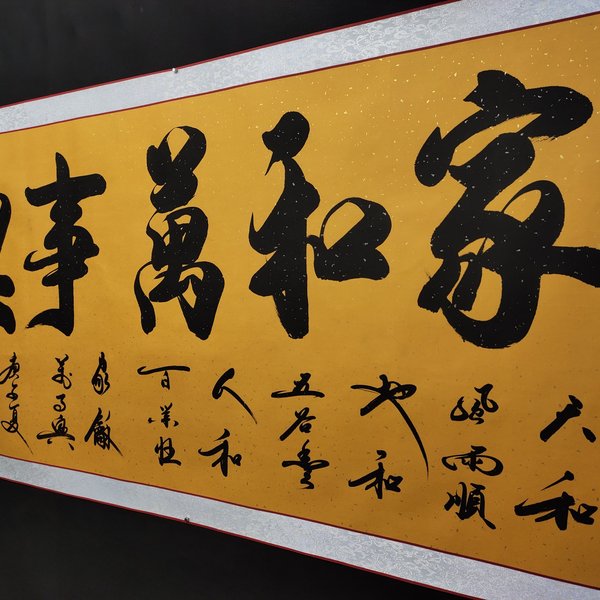 家和萬事
天和
風雨順
地和
五谷豐
人和
百業旺
家龢
萬事興
庚子夏